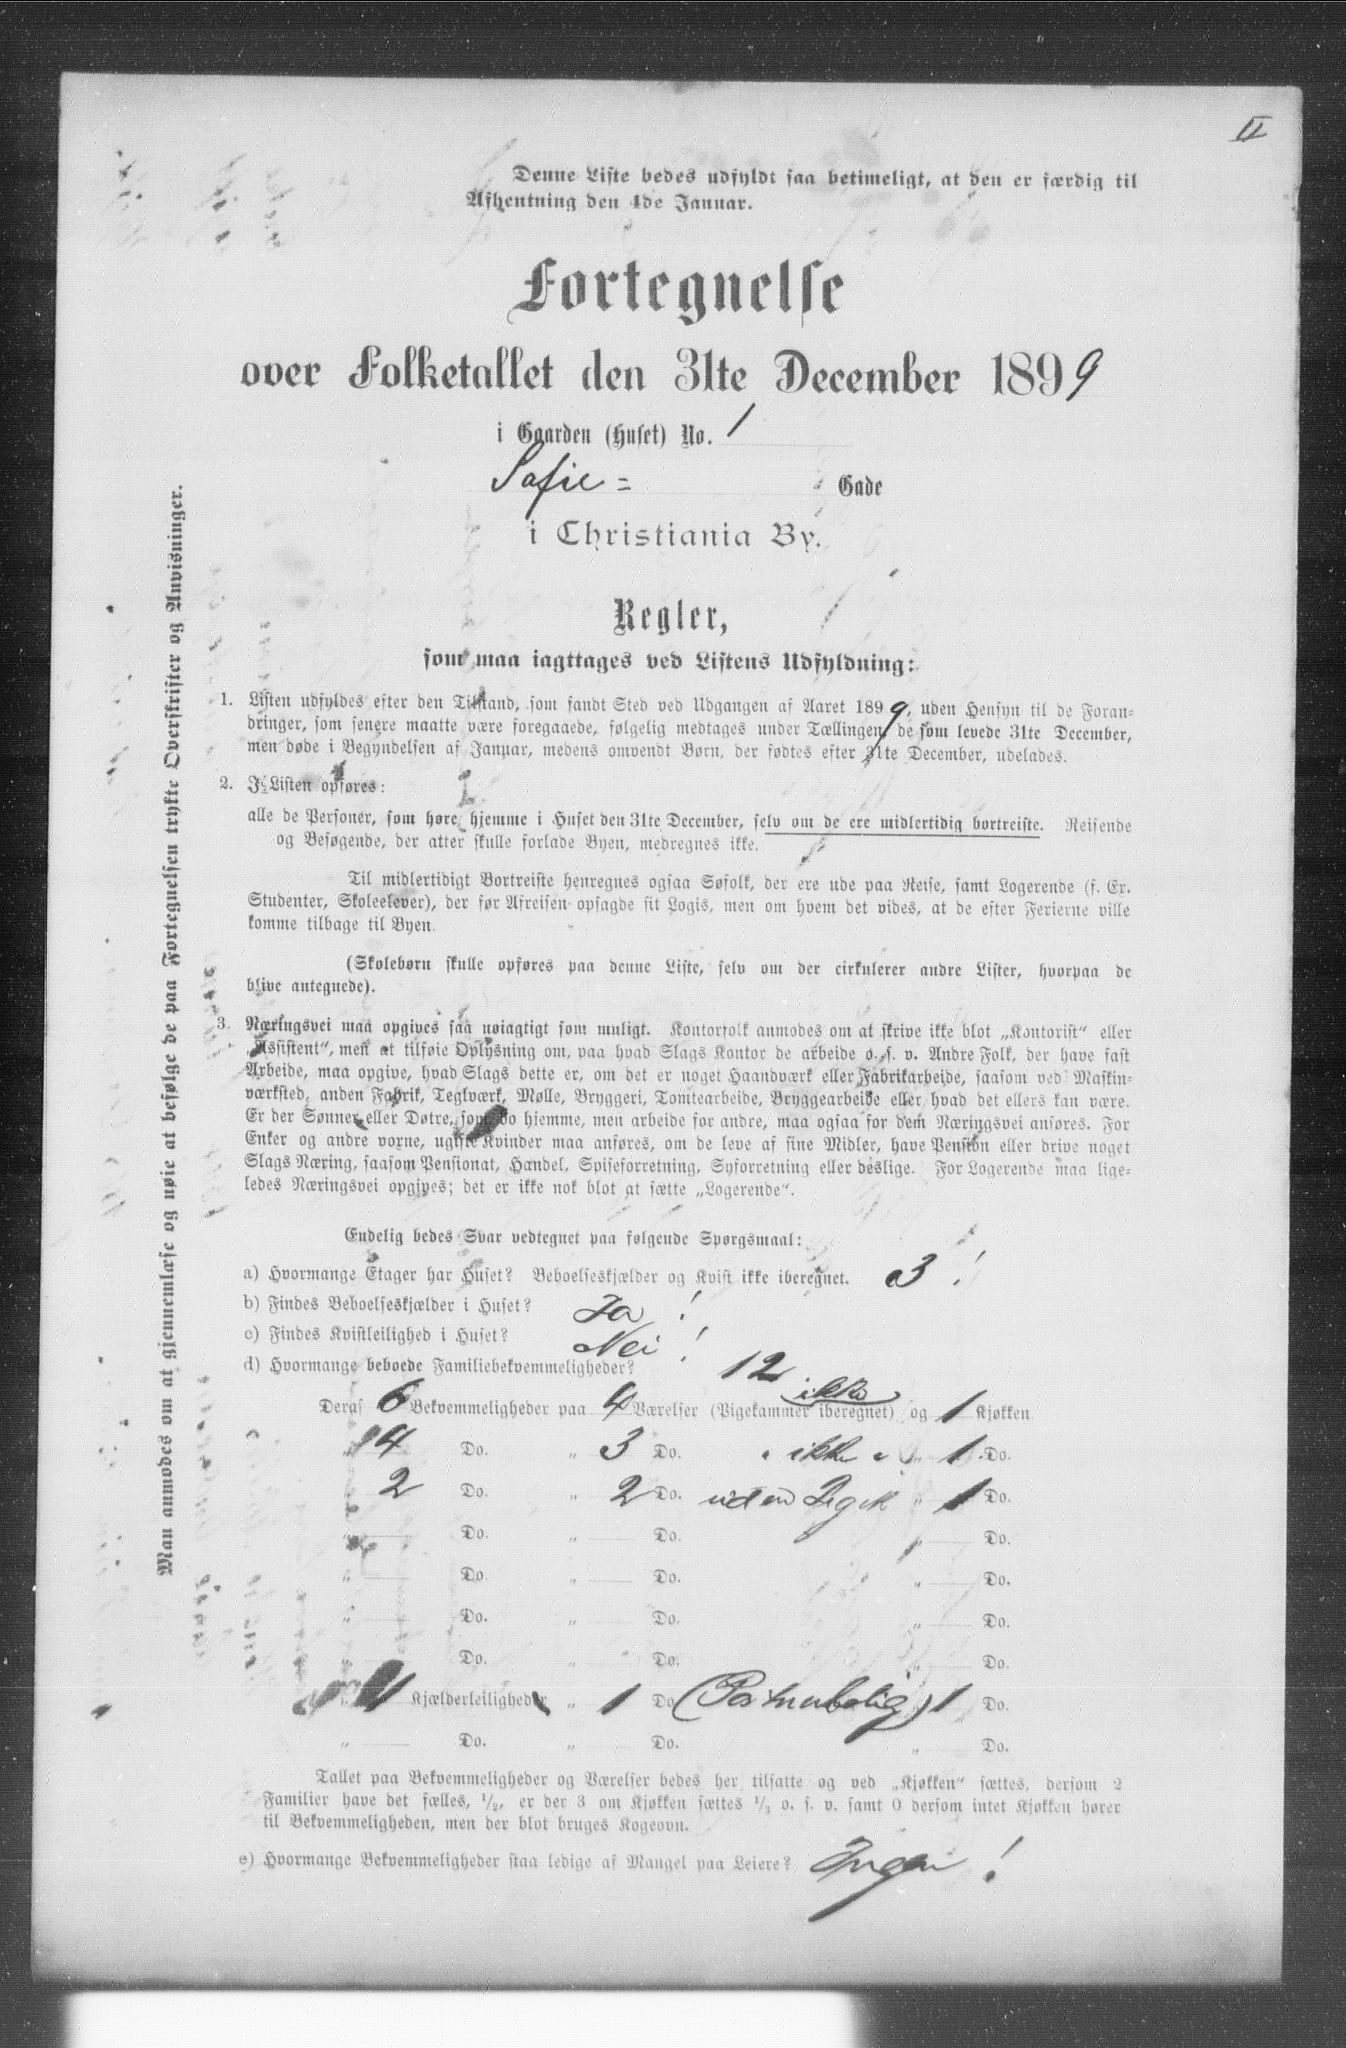 II
Denne Liste bedes udfyldt saa betimeligt, at den er færdig til
Afhentning den 4de Januar.
Fortegnelse
over Folketallet den 31te December 1899
i Gaarden (Huset) No. 1
Sofie= Gade
i Christiania By.
Regler,
som maa iagttages ved Listens Udfyldning:
1. Listen udfyldes efter den Tilstand, som fandt Sted ved Udgangen af Aaret 1899, uden Hensyn til de Foran-
dringer, som senere maatte være foregaaede, følgelig medtages under Tællingen de som levede 31te December,
men døde i Begyndelsen af Januar, medens omvendt Børn, der fødtes efter 31te December, udelades.
2. I Listen opføres:
alle de Personer, som høre hjemme i Huset den 31te December, selv om de ere midlertidig bortreiste. Reisende
og Besøgende, der atter skulle forlade Byen, medregnes ikke.
Til midlertidigt Bortreiste henregnes ogsaa Søfolk, der ere ude paa Reise, samt Logerende (f. Ex.
Studenter, Skoleelever), der før Afreisen opsagde sit Logis, men om hvem det vides, at de efter Ferierne ville
komme tilbage til Byen.
(Skolebørn skulle opføres paa denne Liste, selv om der cirkulerer andre Lister, hvorpaa de
blive antegnede).
3. Næringsvei maa opgives saa nøiagtigt som muligt. Kontorfolk anmodes om at skrive ikke blot „Kontorist“ eller
„Assistent“, men at tilføie Oplysning om, paa hvad Slags Kontor de arbeide o. s. v. Andre Folk, der have fast
Arbeide, maa opgive, hvad Slags dette er, om det er noget Haandværk eller Fabrikarbeide, saasom ved Maskin-
værksted, anden Fabrik, Teglværk, Mølle, Bryggeri, Tomtearbeide, Bryggearbeide eller hvad det ellers kan være.
Er der Sønner eller Døtre, som bo hjemme, men arbeide for andre, maa ogsaa for dem Næringsvei anføres. For
Enker og andre voxne, ugifte Kvinder maa anføres, om de leve af sine Midler, have Pension eller drive noget
Slags Næring, saasom Pensionat, Handel, Spiseforretning, Syforretning eller deslige. For Logerende maa lige-
ledes Næringsvei opgives; det er ikke nok blot at sætte „Logerende“.
Endelig bedes Svar vedtegnet paa følgende Spørgsmaal:
a) Hvormange Etager har Huset? Beboelseskjælder og Kvist ikke iberegnet. 3!
b) Findes Beboelseskjælder i Huset? Ja!
c) Findes Kvistleilighed i Huset? Nei!
d) Hvormange beboede Familiebekvemmeligheder? 12
ikke
Deraf 6 Bekvemmeligheder paa 4 Værelser (Pigekammer iberegnet) og 1 Kjøkken
„ 4 Do. „ 3 Do. „ ikke „ „ 1 Do.
2 Do. „ 2 Do. uden Pigek „ 1 Do.
„ Do. „ Do. „ Do.
„ Do. „ Do. „ Do.
„ Do. „ Do. „ Do.
Do. „ Do. „ Do.
„ 1 Kjælderleilighed „ 1 Do (Portnerbolig) 1 Do.
„ Do. „ Do. „ Do.
Tallet paa Bekvemmeligheder og Værelser bedes her tilsatte og ved „Kjøkken“ sættes, dersom 2
Familier have det fælles, 1/2, er der 3 om Kjøkken sættes 1/3 o. s. v. samt 0 dersom intet Kjøkken hører
til Bekvemmeligheden, men der blot bruges Kogeovn.
e) Hvormange Bekvemmeligheder staa ledige af Mangel paa Leiere? Ingen!
Man anmodes om at gjennemlæse og nøie at befølge de paa Fortegnelsen trykte Overskrifter og Anvisninger.